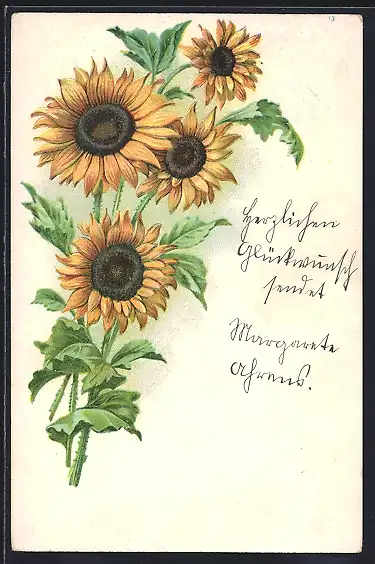 13
Herzlichen
Glückwunsch
sendet
Margarete
Ahrens.